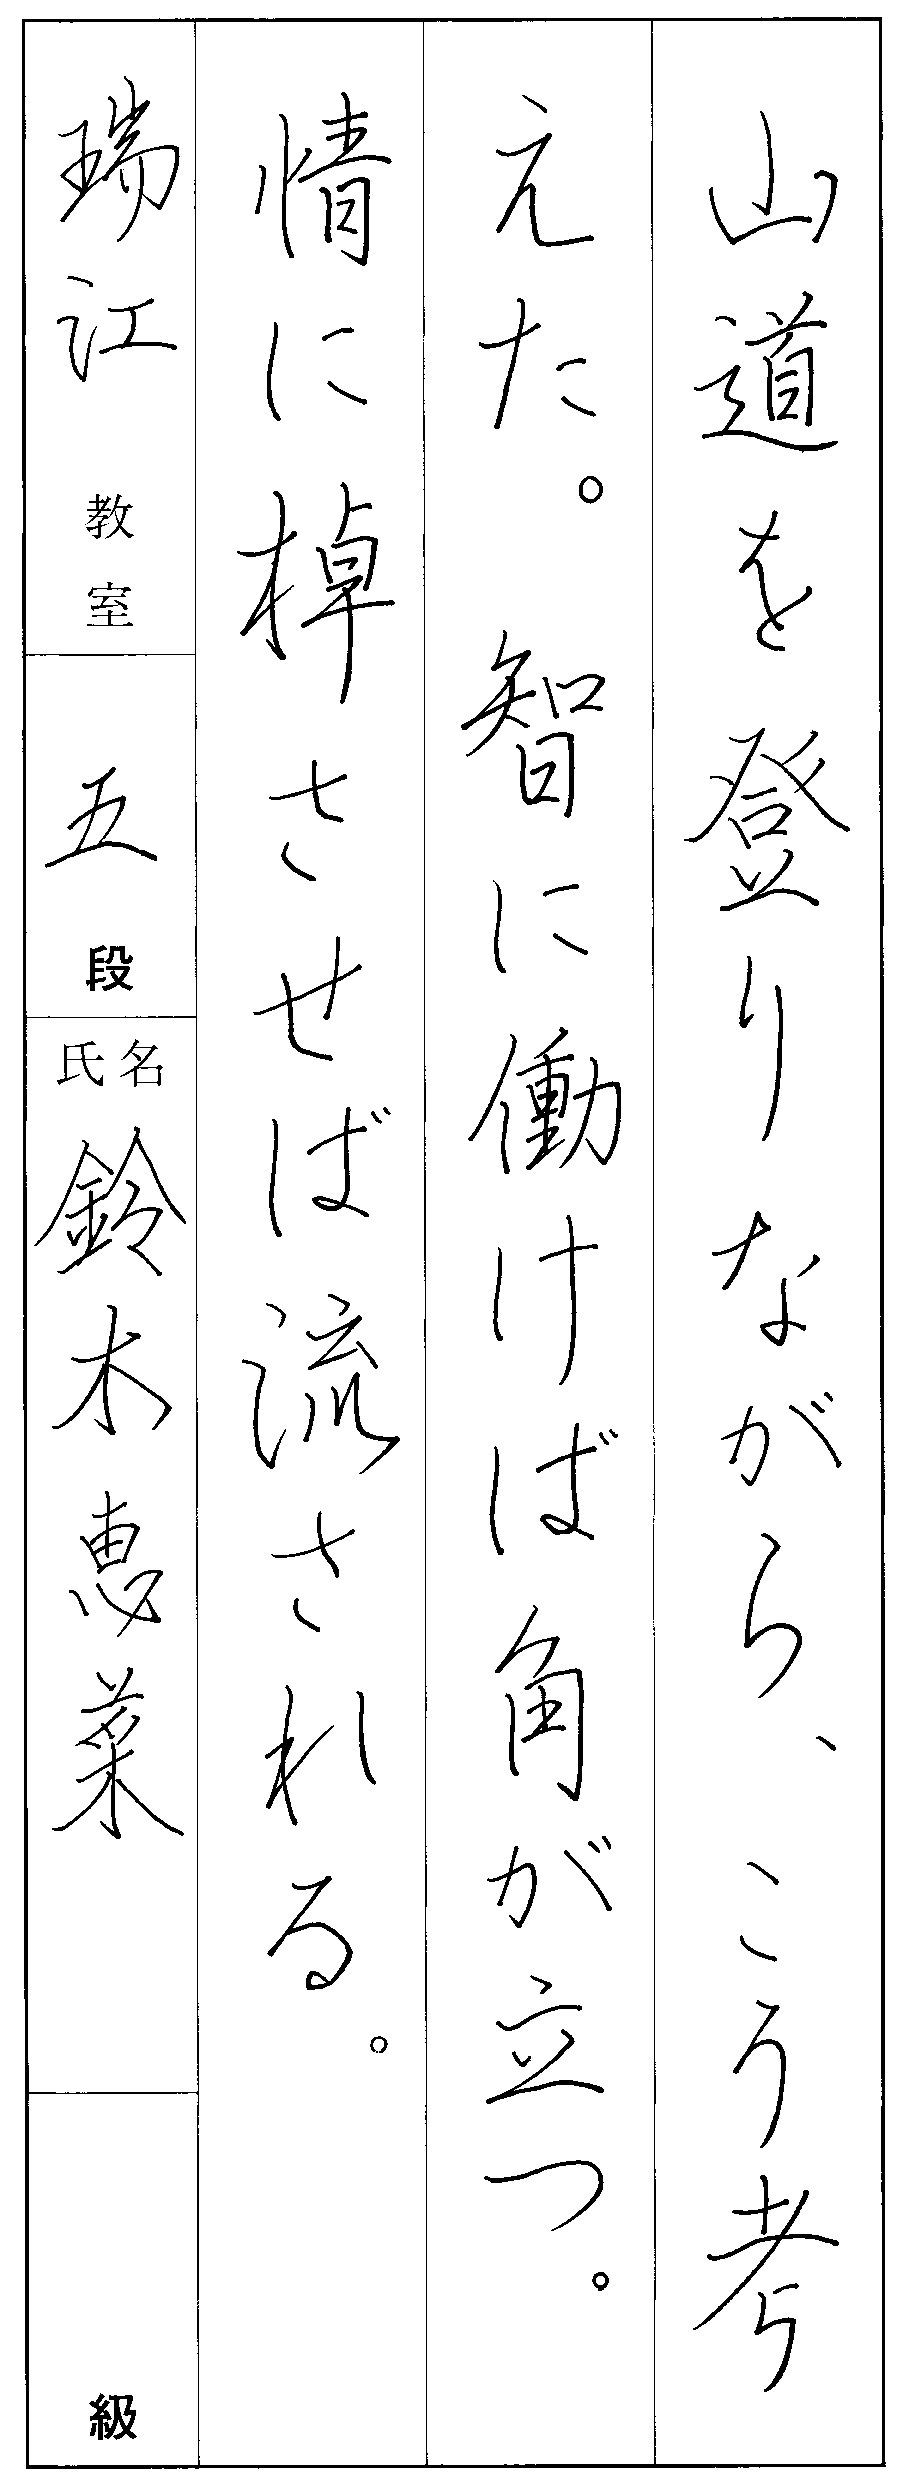 山道を登りながら、こう考
えた。智に働けば角が立つ。
情に棹させば流される。
瑞江 教室 五 段 氏名 鈴木恵菜 級